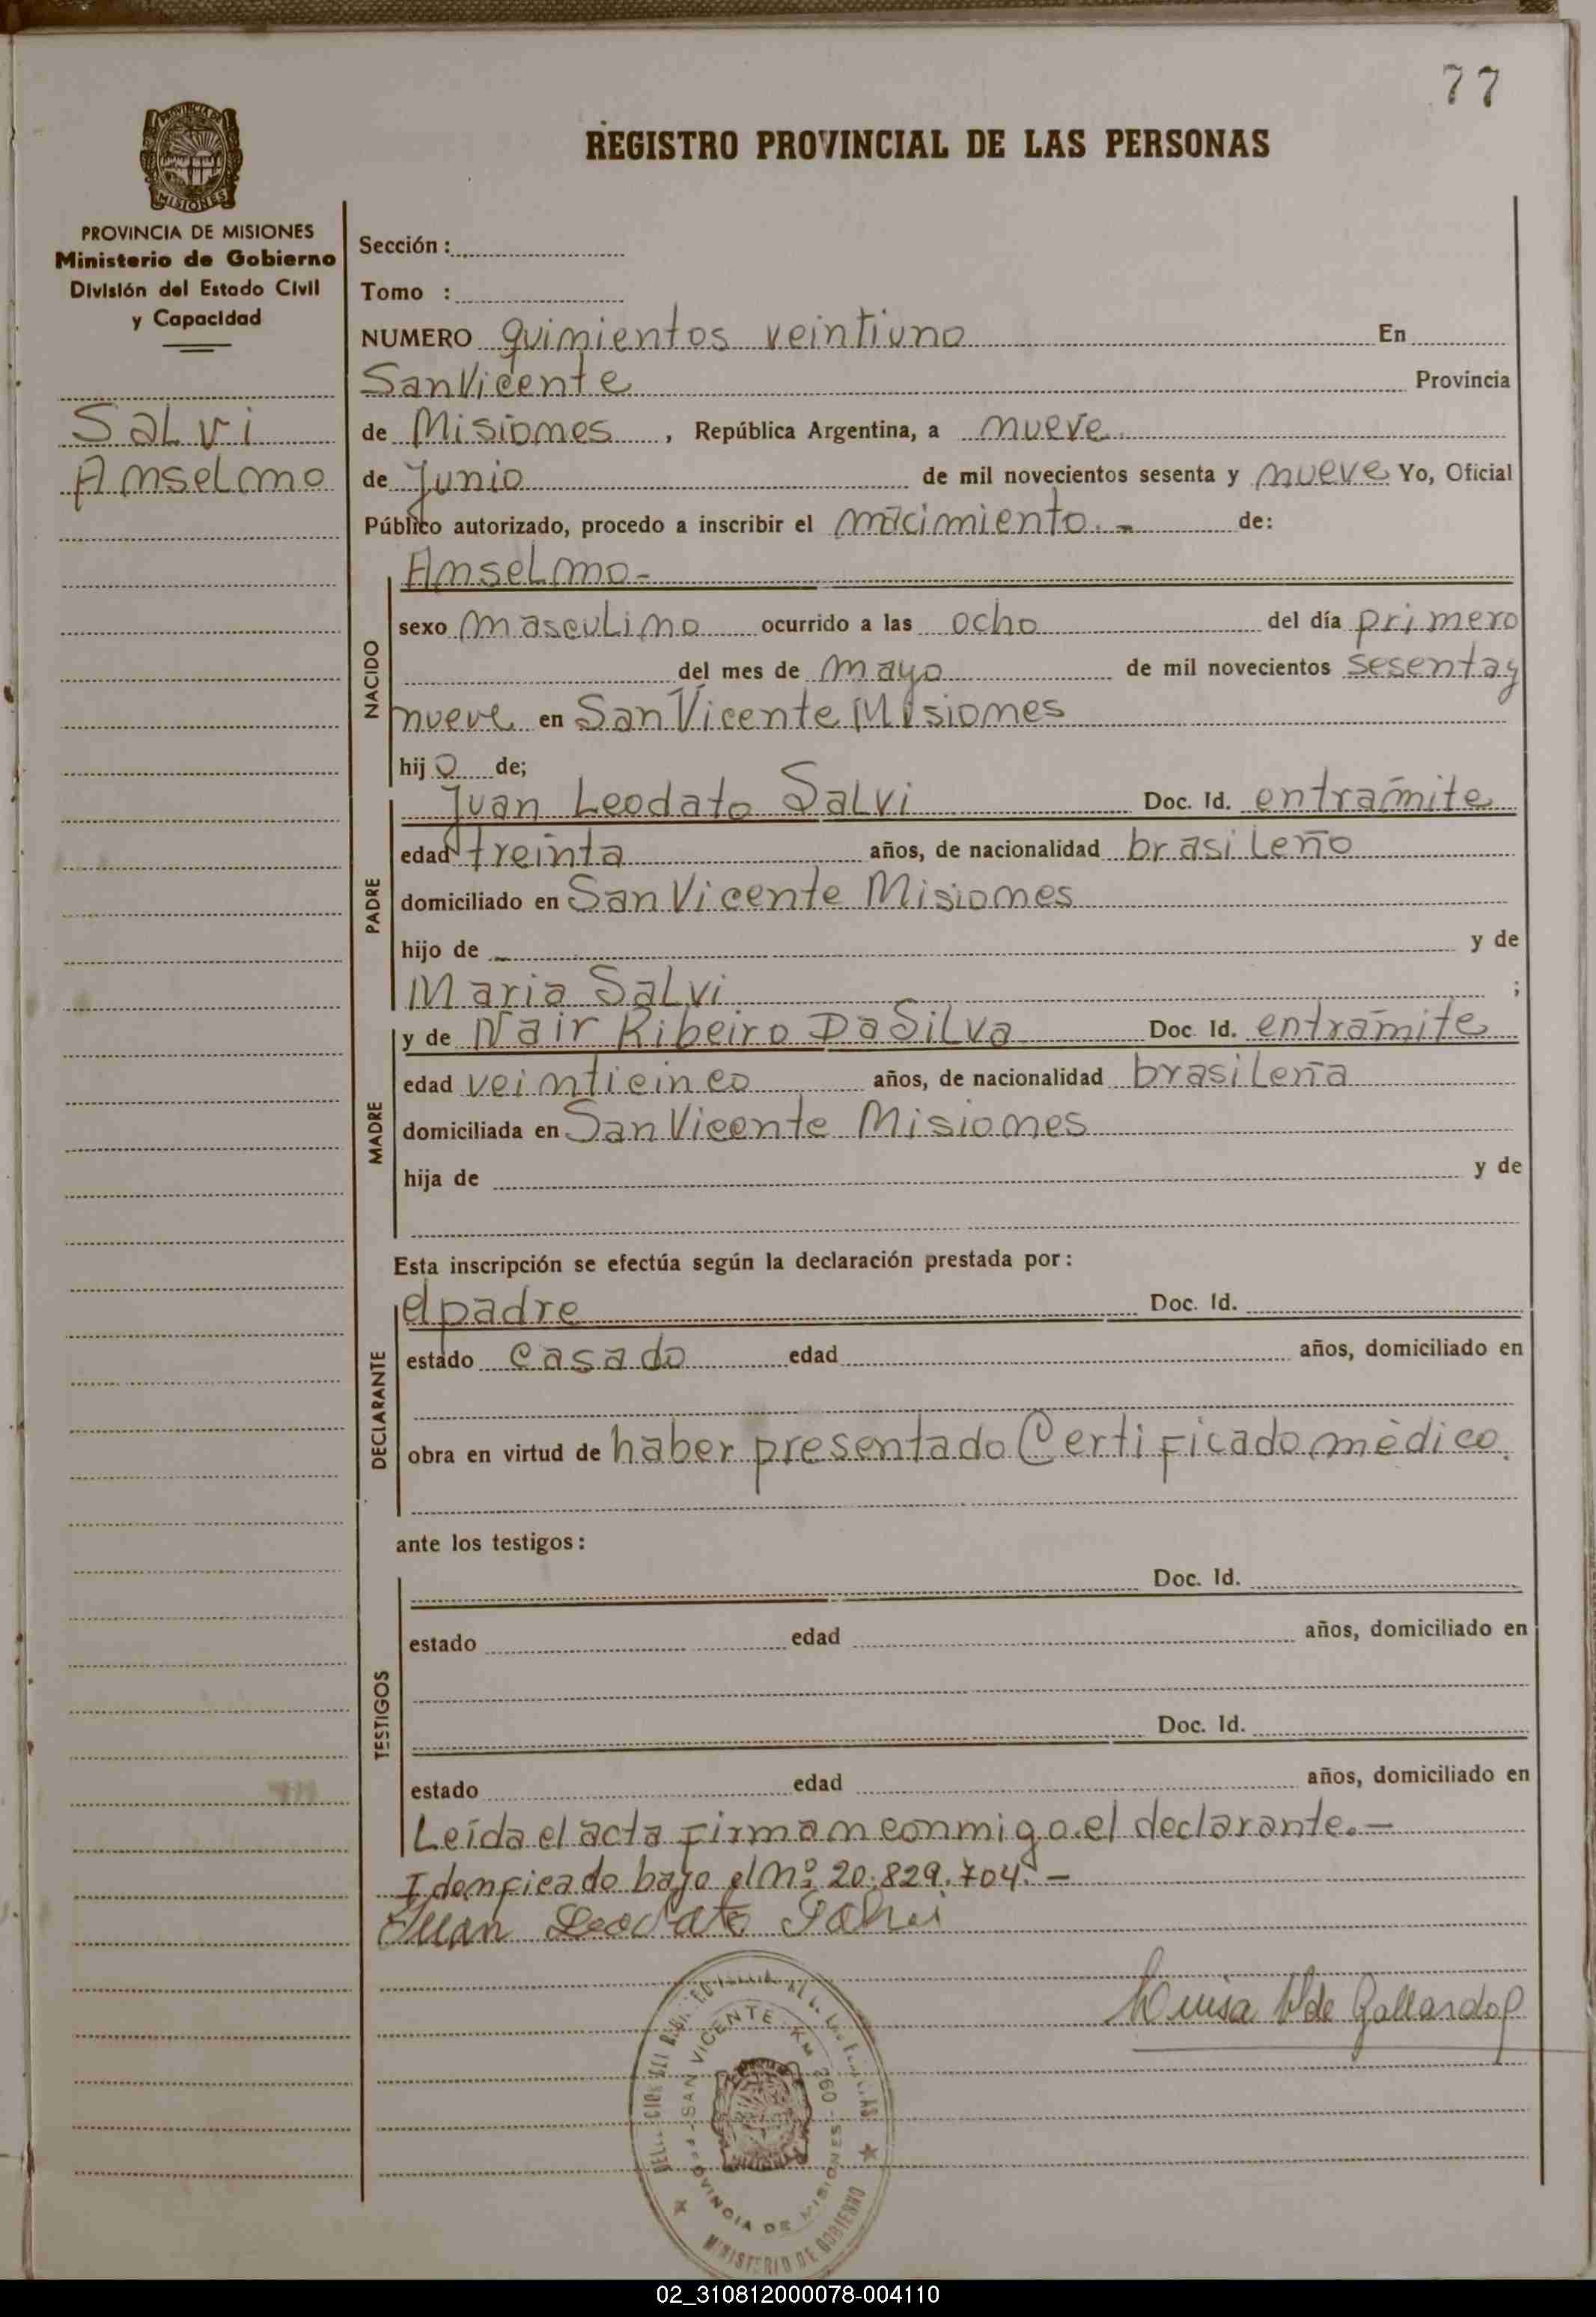 77
REGISTRO PROVINCIAL DE LAS PERSONAS
MISIONES
PROVINCIA DE MISIONES
Ministerio de Gobierno
División del Estado Civil
y Capacidad
Salvi
Anselmo
Sección :
Tomo :
NUMERO quinientos veintiuno En
San Vicente Provincia
de Misiones , República Argentina, a nueve
de Junio de mil novecientos sesenta y nueve Yo, Oficial
Público autorizado, procedo a inscribir el nacimiento.- de:
NACIDO
Anselmo-
sexo masculino ocurrido a las ocho del día primero
del mes de mayo de mil novecientos sesenta y
nueve en San Vicente Misiones
hij o de;
PADRE
Juan Leodato Salvi Doc. Id. entramite
edad treinta años, de nacionalidad brasileño
domiciliado en San Vicente Misiones
hijo de - y de
Maria Salvi ;
MADRE
y de Nair Ribeiro DaSilva Doc. Id. entramite
edad veinticinco años, de nacionalidad brasileña
domiciliada en San Vicente Misiones
hija de y de
Esta inscripción se efectúa según la declaración prestada por:
DECLARANTE
el padre Doc. Id.
estado casado edad años, domiciliado en
obra en virtud de haber presentado Certificado mèdico.
ante los testigos:
TESTIGOS
Doc. Id.
estado edad años, domiciliado en
Doc. Id.
estado edad años, domiciliado en
Leída el acta firman conmigo el declarante.-
Idenficado bajo el Nº 20.829.704.-
Juan Leodato Salvi
Luisa V de Gallardo
SAN VICENTE - KM 260 - PROVINCIA DE MISIONES
MINISTERIO DE GOBIERNO
02_310812000078-004110